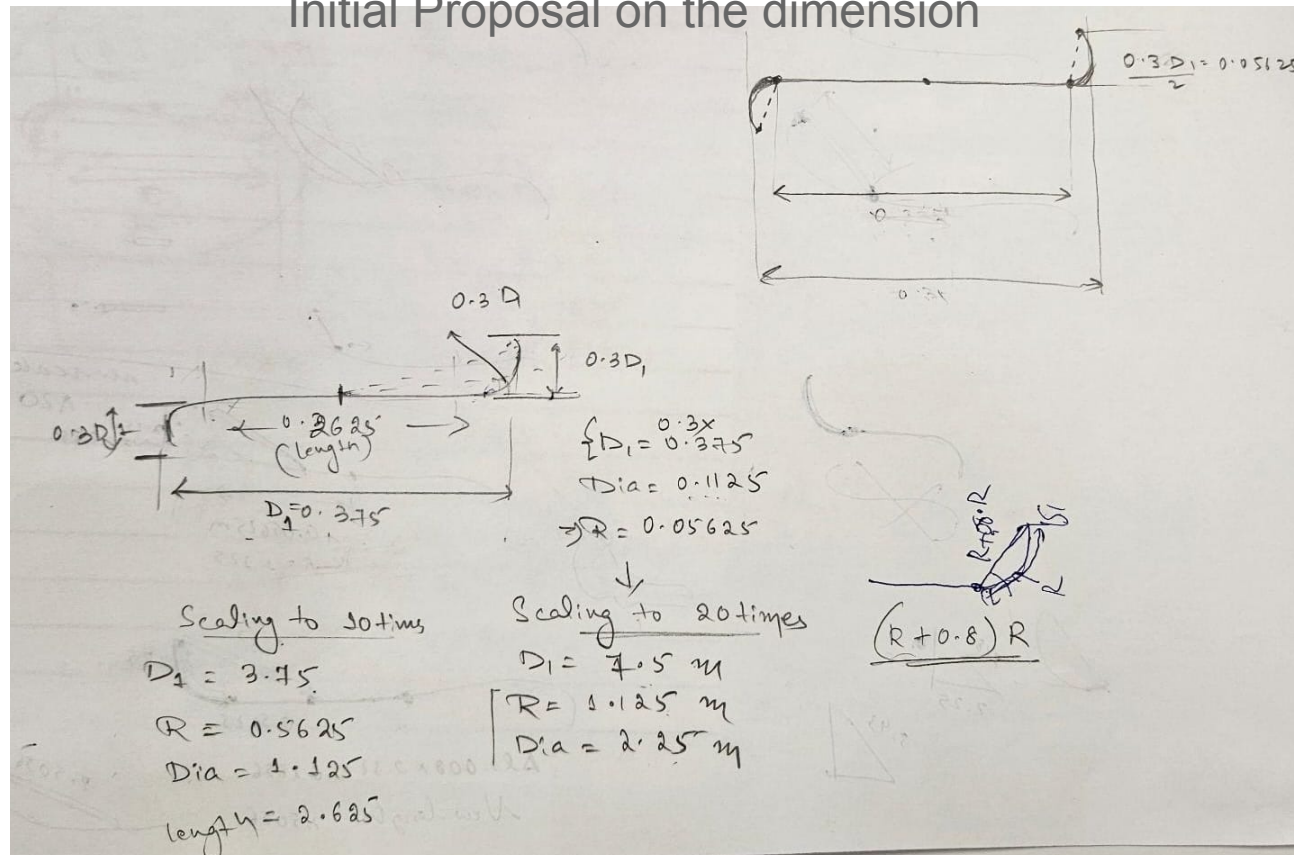 Initial Proposal on the dimension
0.3 D1 = 0.05625
2
0.3 D
0.3D1
0.3D1
0.2625
(length)
D1=0.375
0.3x
{D1 = 0.375
Dia = 0.1125
⇒ R = 0.05625
↓
Scaling to 10 tims
D1 = 3.75
R = 0.5625
Dia = 1.125
length = 2.625
Scaling to 20 times
D1 = 7.5 m
R = 1.125 m
Dia = 2.25 m
R
(R + 0.8) R